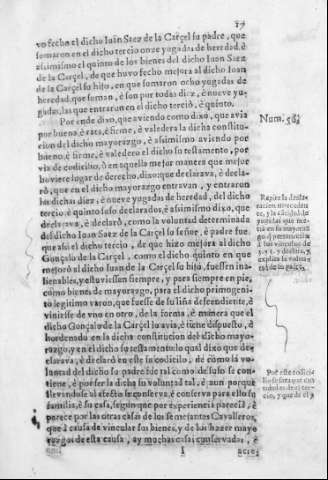 17
vo fecho el dicho Iuan Saez de la Carçel su padre, que
somaron en el dicho tercio onze yugadas de heredad, è
assimismo el quinto de los bienes del dicho Iuan Saez
de la Carçel, de que huvo fecho mejora al dicho Ioan
de la Carçel su hijo, en que somaron ocho yugadas de
heredad, que suman, è son por todas diez, è nueve yu-
gadas, las que entraron en el dicho tercio, è quinto.
Por ende dixo, que aviendo como dixo, que avia
por bueno, è rata, è firme, è valedera la dicha constitu-
cion del dicho mayorazgo, è assimismo aviendo por
bueno, è firme, è valedero el dicho su testamento, por
via de codicilo, ò en aquella mejor manera que mejor
huviere lugar de derecho, dixo: que declarava, è decla-
rò, que en el dicho mayorazgo entravan, y entraron
las dichas diez, è nueve yugadas de heredad, del dicho
tercio, è quinto suso declarados, è assimismo dixo, que
declarava, è declarò, como la voluntad determinada
del dicho Iuan Saez de la Carçel su señor, è padre fue,
que assi el dicho tercio, de que hizo mejora al dicho
Gonçalo de la Carçel, como el dicho quinto en que
mejorò al dicho Iuan de la Carçel su hijo, fuessen ina-
lienables, y estuviessen siempre, y para siempre en pie,
como bienes de mayorazgo, para el dicho primogeni-
to legitimo varon, que fuesse de su liña defendiente, è
viniesse de vno en otro, de la forma, è manera que el
dicho Gonçalo de la Carçel lo avia, è tiene dispuesto, è
hordenado en la dicha constitucion del dicho mayo-
razgo, y en el dicho su testamento lo qual dixo que de-
clarava, è declarò en este su codicilo, de còmo la vo-
luntad del dicho su padre fue tal como de suso se con-
tiene, è por ser la dicha su voluntad tal, è aun porque
llevandose al efecto se conserva, è conserva para ello su
familia, è su casa, segun que por experiencia pareciò, è
parece por las otras casas de los semejantes Cavalleros,
que à causa de vincular sus bienes, y de los hazer mayo-
razgos de esta causa, ay muchas casas conservadas, è
I
Num. 58.
Repite la decla-
racion
yugadas que me-
tiò en su mayoraz-
go
explica la volun-
tad de su padre.
Por este codici-
lo